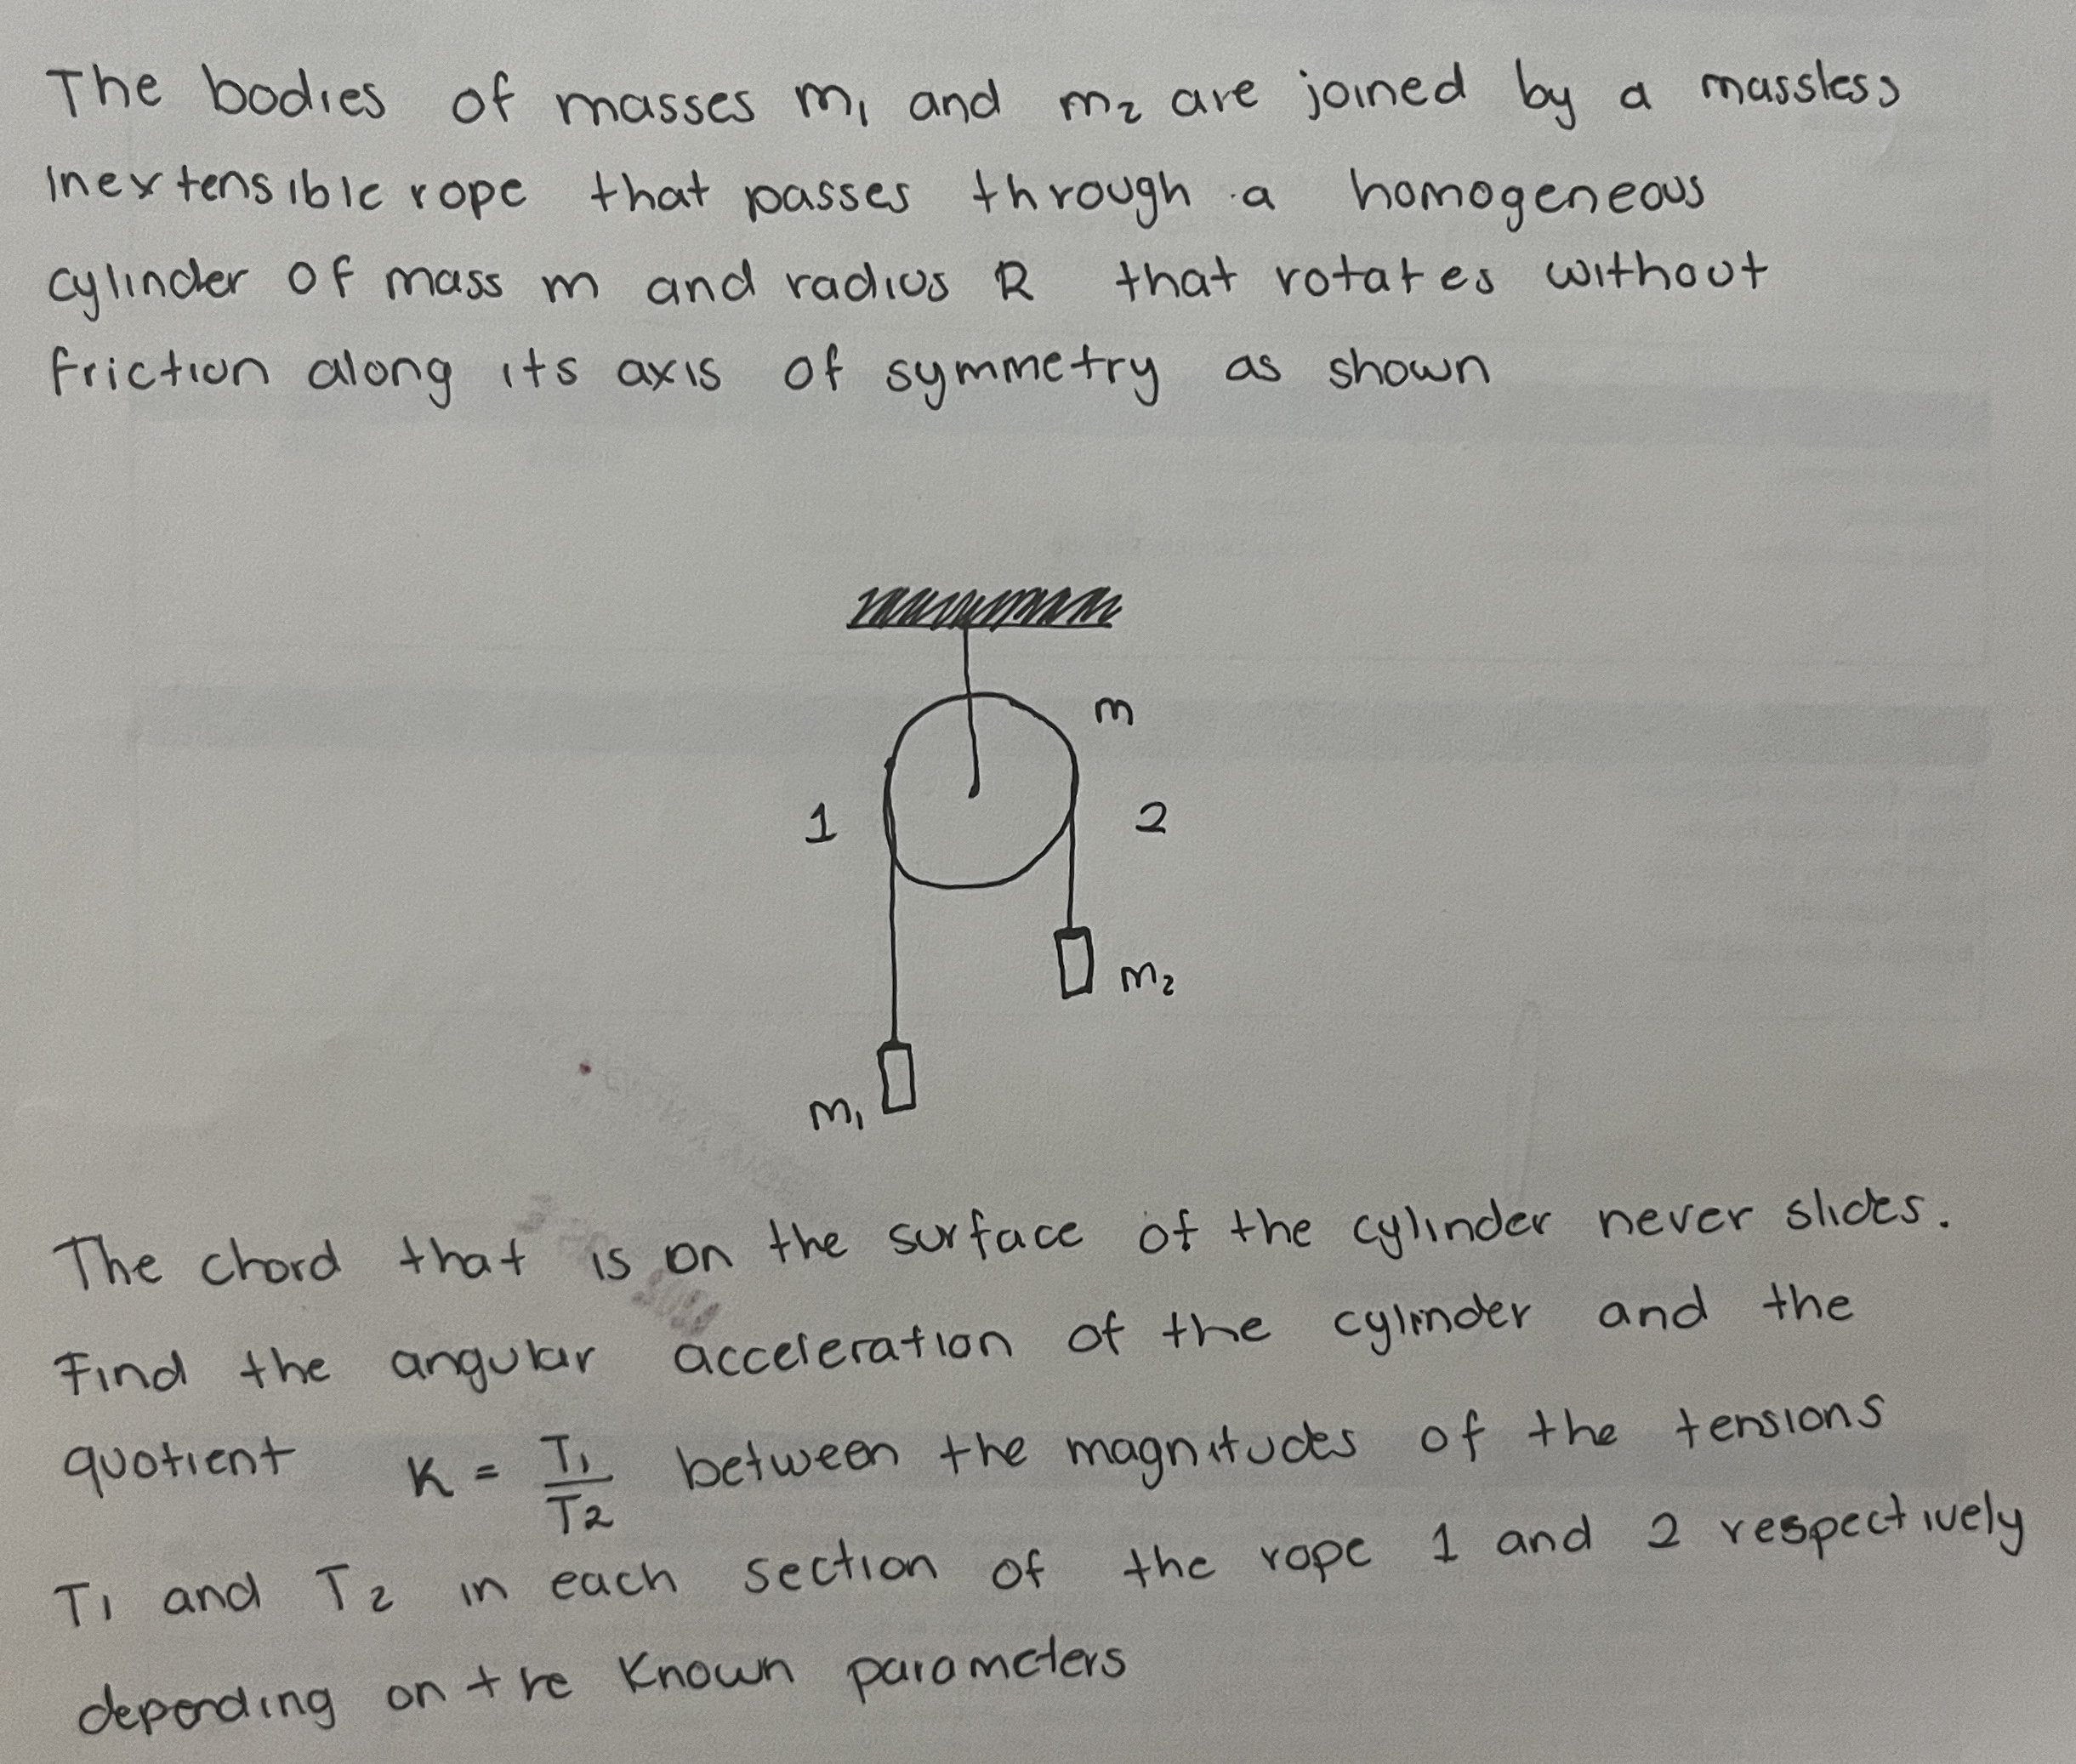 The bodies of masses m₁ and m₂ are joined by a massless
inextensible rope that passes through a homogeneous
cylinder of mass m and radius R that rotates without
friction along its axis of symmetry as shown
m
1
2
m₂
m₁
The chord that is on the surface of the cylinder never slides.
Find the angular acceleration of the cylinder and the
quotient K = T₁/T₂ between the magnitudes of the tensions
T₁ and T₂ in each section of the rope 1 and 2 respectively
depending on the known parameters